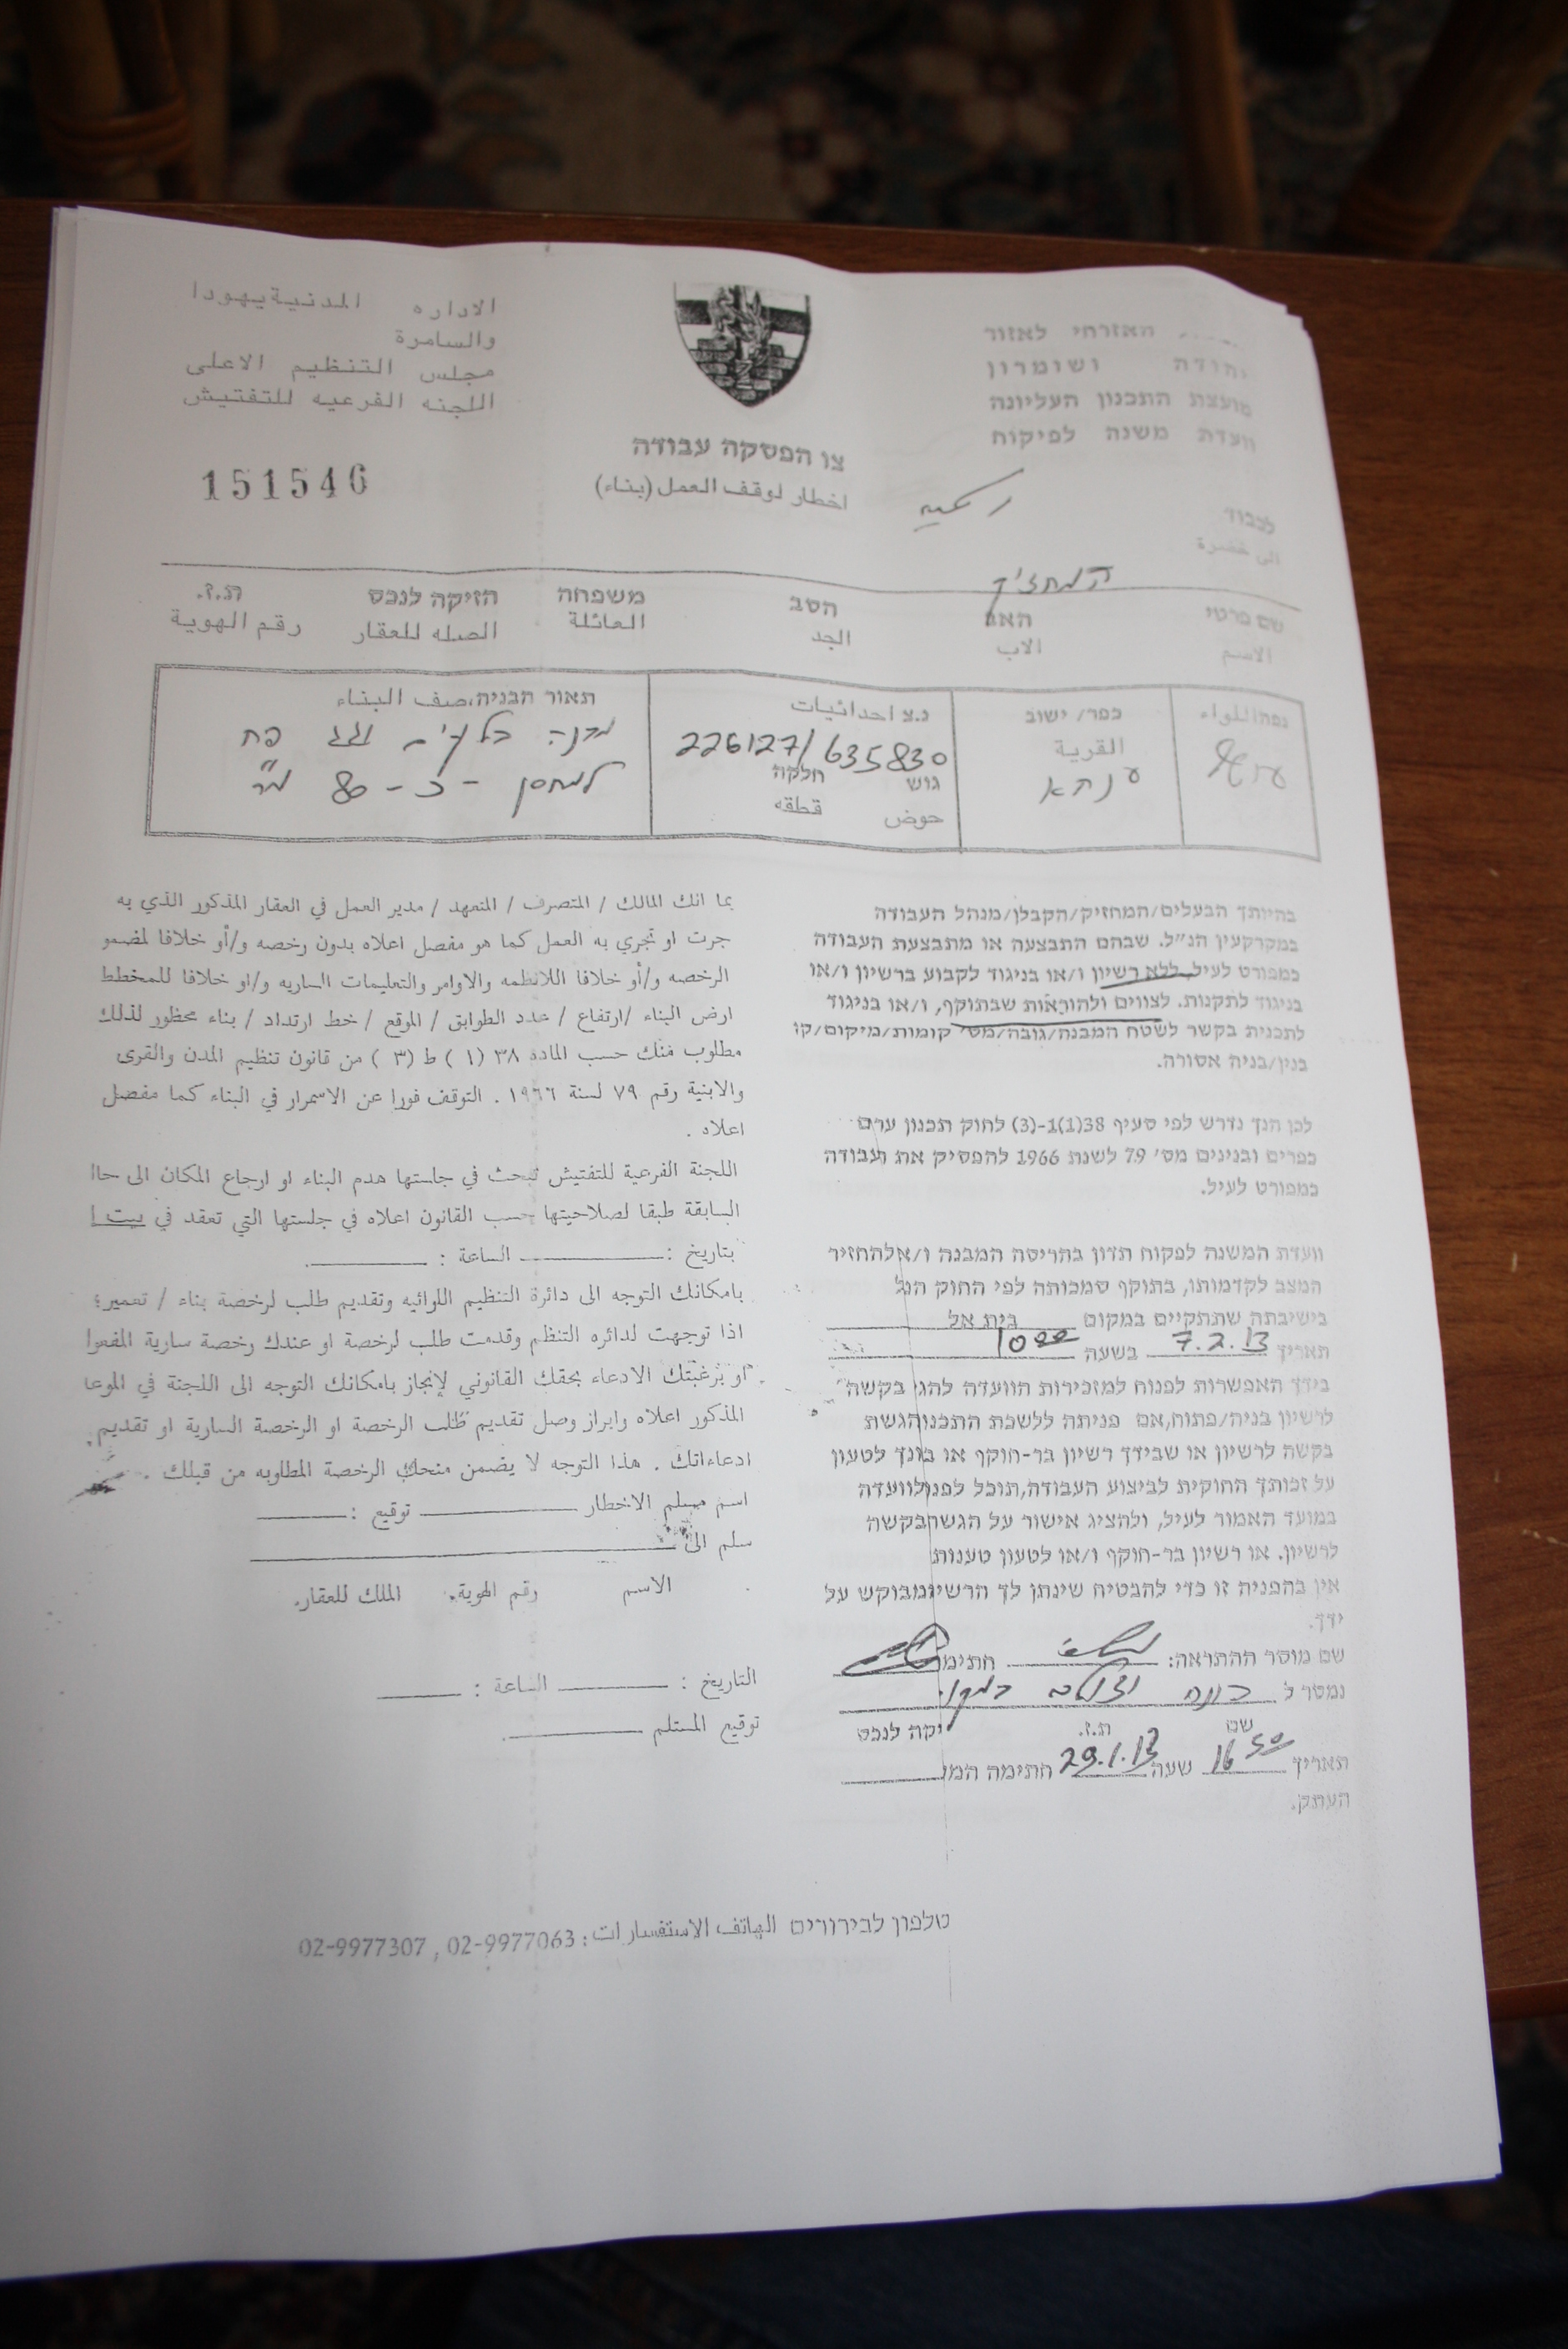 האזרחי לאזור
יהודה ושומרון
מועצת התכנון העליונה
וועדת משנה לפיקוח
الاداره المدنية يهودا
والسامرة
مجلس التنظيم الاعلى
اللجنه الفرعيه للتفتيش
צו הפסקה עבודה
اخطار لوقف العمل (بناء)
151546
לכבוד
الى حضرة
המחזיק
שם פרטי האב הסב משפחה הזיקה לנכס ת.ז.
الاسم الاب الجد العائلة الصله للعقار رقم الهوية
נפה اللواء
כפר/ ישוב
القرية
ענתא
נ.צ احداثيات
226127/635830
גוש חלקה
حوض قطقه
תאור הבניה,صف البناء
מבנה בלוקים וגג פח
למחסן - כ - 80 מ"ר
בהיותך הבעלים/המחזיק/הקבלן/מנהל העבודה
במקרקעין הנ״ל. שבהם התבצעה או מתבצעת העבודה
כמפורט לעיל, ללא רשיון ו/או בניגוד לקבוע ברשיון ו/או
בניגוד לתקנות. לצווים ולהוראות שבתוקף, ו/או בניגוד
לתכנית בקשר לשטח המבנה/גובה/מס׳ קומות/מיקום/קו
בנין/בניה אסורה.
לכן הנך נדרש לפי סעיף 38(1)1-(3) לחוק תכנון ערים
כפרים ובנינים מס׳ 79 לשנת 1966 להפסיק את העבודה
כמפורט לעיל.
וועדת המשנה לפקוח תדון בהריסת המבנה ו/אלהחזיר
המצב לקדמותו, בתוקף סמכותה לפי החוק הנל
בישיבתה שתתקיים במקום בית אל
תאריך 7.2.13 בשעה 10 00
בידך האפשרות לפנות למזכירות הוועדה להג בקשה
לרשיון בניה/פתוח,אם פניתה ללשכת התכנוהגשת
בקשה לרשיון או שבידך רשיון בר-תוקף או בונך לטעון
על זכותך החוקית לביצוע העבודה,תוכל לפנולוועדה
במועד האמור לעיל, ולהציג אישור על הגשהבקשה
לרשיון. או רשיון בר-תוקף ו/או לטעון טענות
אין בהפניה זו כדי להבטיח שינתן לך הרשיוםבוקש על
ידך.
שם מוסר ההתראה: חתימה
נמסר ל
שם ת.ז. יקה לנכס
תאריך 16 50 שעה 29.1.13 חתימה המו
העתק.
بما انك المالك / المتصرف / المتعهد / مدير العمل في العقار المذكور الذي به
جرت او تجري به العمل كما هو مفصل اعلاه بدون رخصه و/أو خلافا لمضمو
الرخصه و/أو خلافا اللانظمه والاوامر والتعليمات الساريه و/او خلافا للمخطط
ارض البناء /ارتفاع / عدد الطوابق / الموقع / خط ارتداد / بناء محظور لذلك
مطلوب منك حسب المادة ٣٨ (١ ) ط (٣ ) من قانون تنظيم المدن والقرى
والابنية رقم ٧٩ لسنة ١٩٦٦ . التوقف فورا عن الاسمرار في البناء كما مفصل
اعلاه .
اللجنة الفرعية للتفتيش تبحث في جاستها هدم البناء او ارجاع المكان الى حاا
السابقة طبقا لصلاحيتها حسب القانون اعلاه في جلستها التي تعقد في بيت ا
بتاريخ : الساعة : .
بامكانك التوجه الى دائرة التنظيم اللوائيه وتقديم طلب لرخصة بناء / تعمير؛
اذا توجهت لدائره التنظم وقدمت طلب لرخصة او عندك رخصة سارية المفعوا
او برغبتك الادعاء بحقك القانوني لإنجاز بامكانك التوجه الى اللجنة في الموعا
المذكور اعلاه وابراز وصل تقديم طلب الرخصة او الرخصة السارية او تقديم
ادعاءاتك . هذا التوجه لا يضمن منحك الرخصة المطاوبه من قبلك .
اسم مسلم الاخطار توقيع :
سلم الى
الاسم رقم الهوية. الملك للعقار.
التاريخ : الساعة :
توقيع المستلم .
טלפון לבירורים الهاتف الاستفسارات : 02-9977063 , 02-9977307